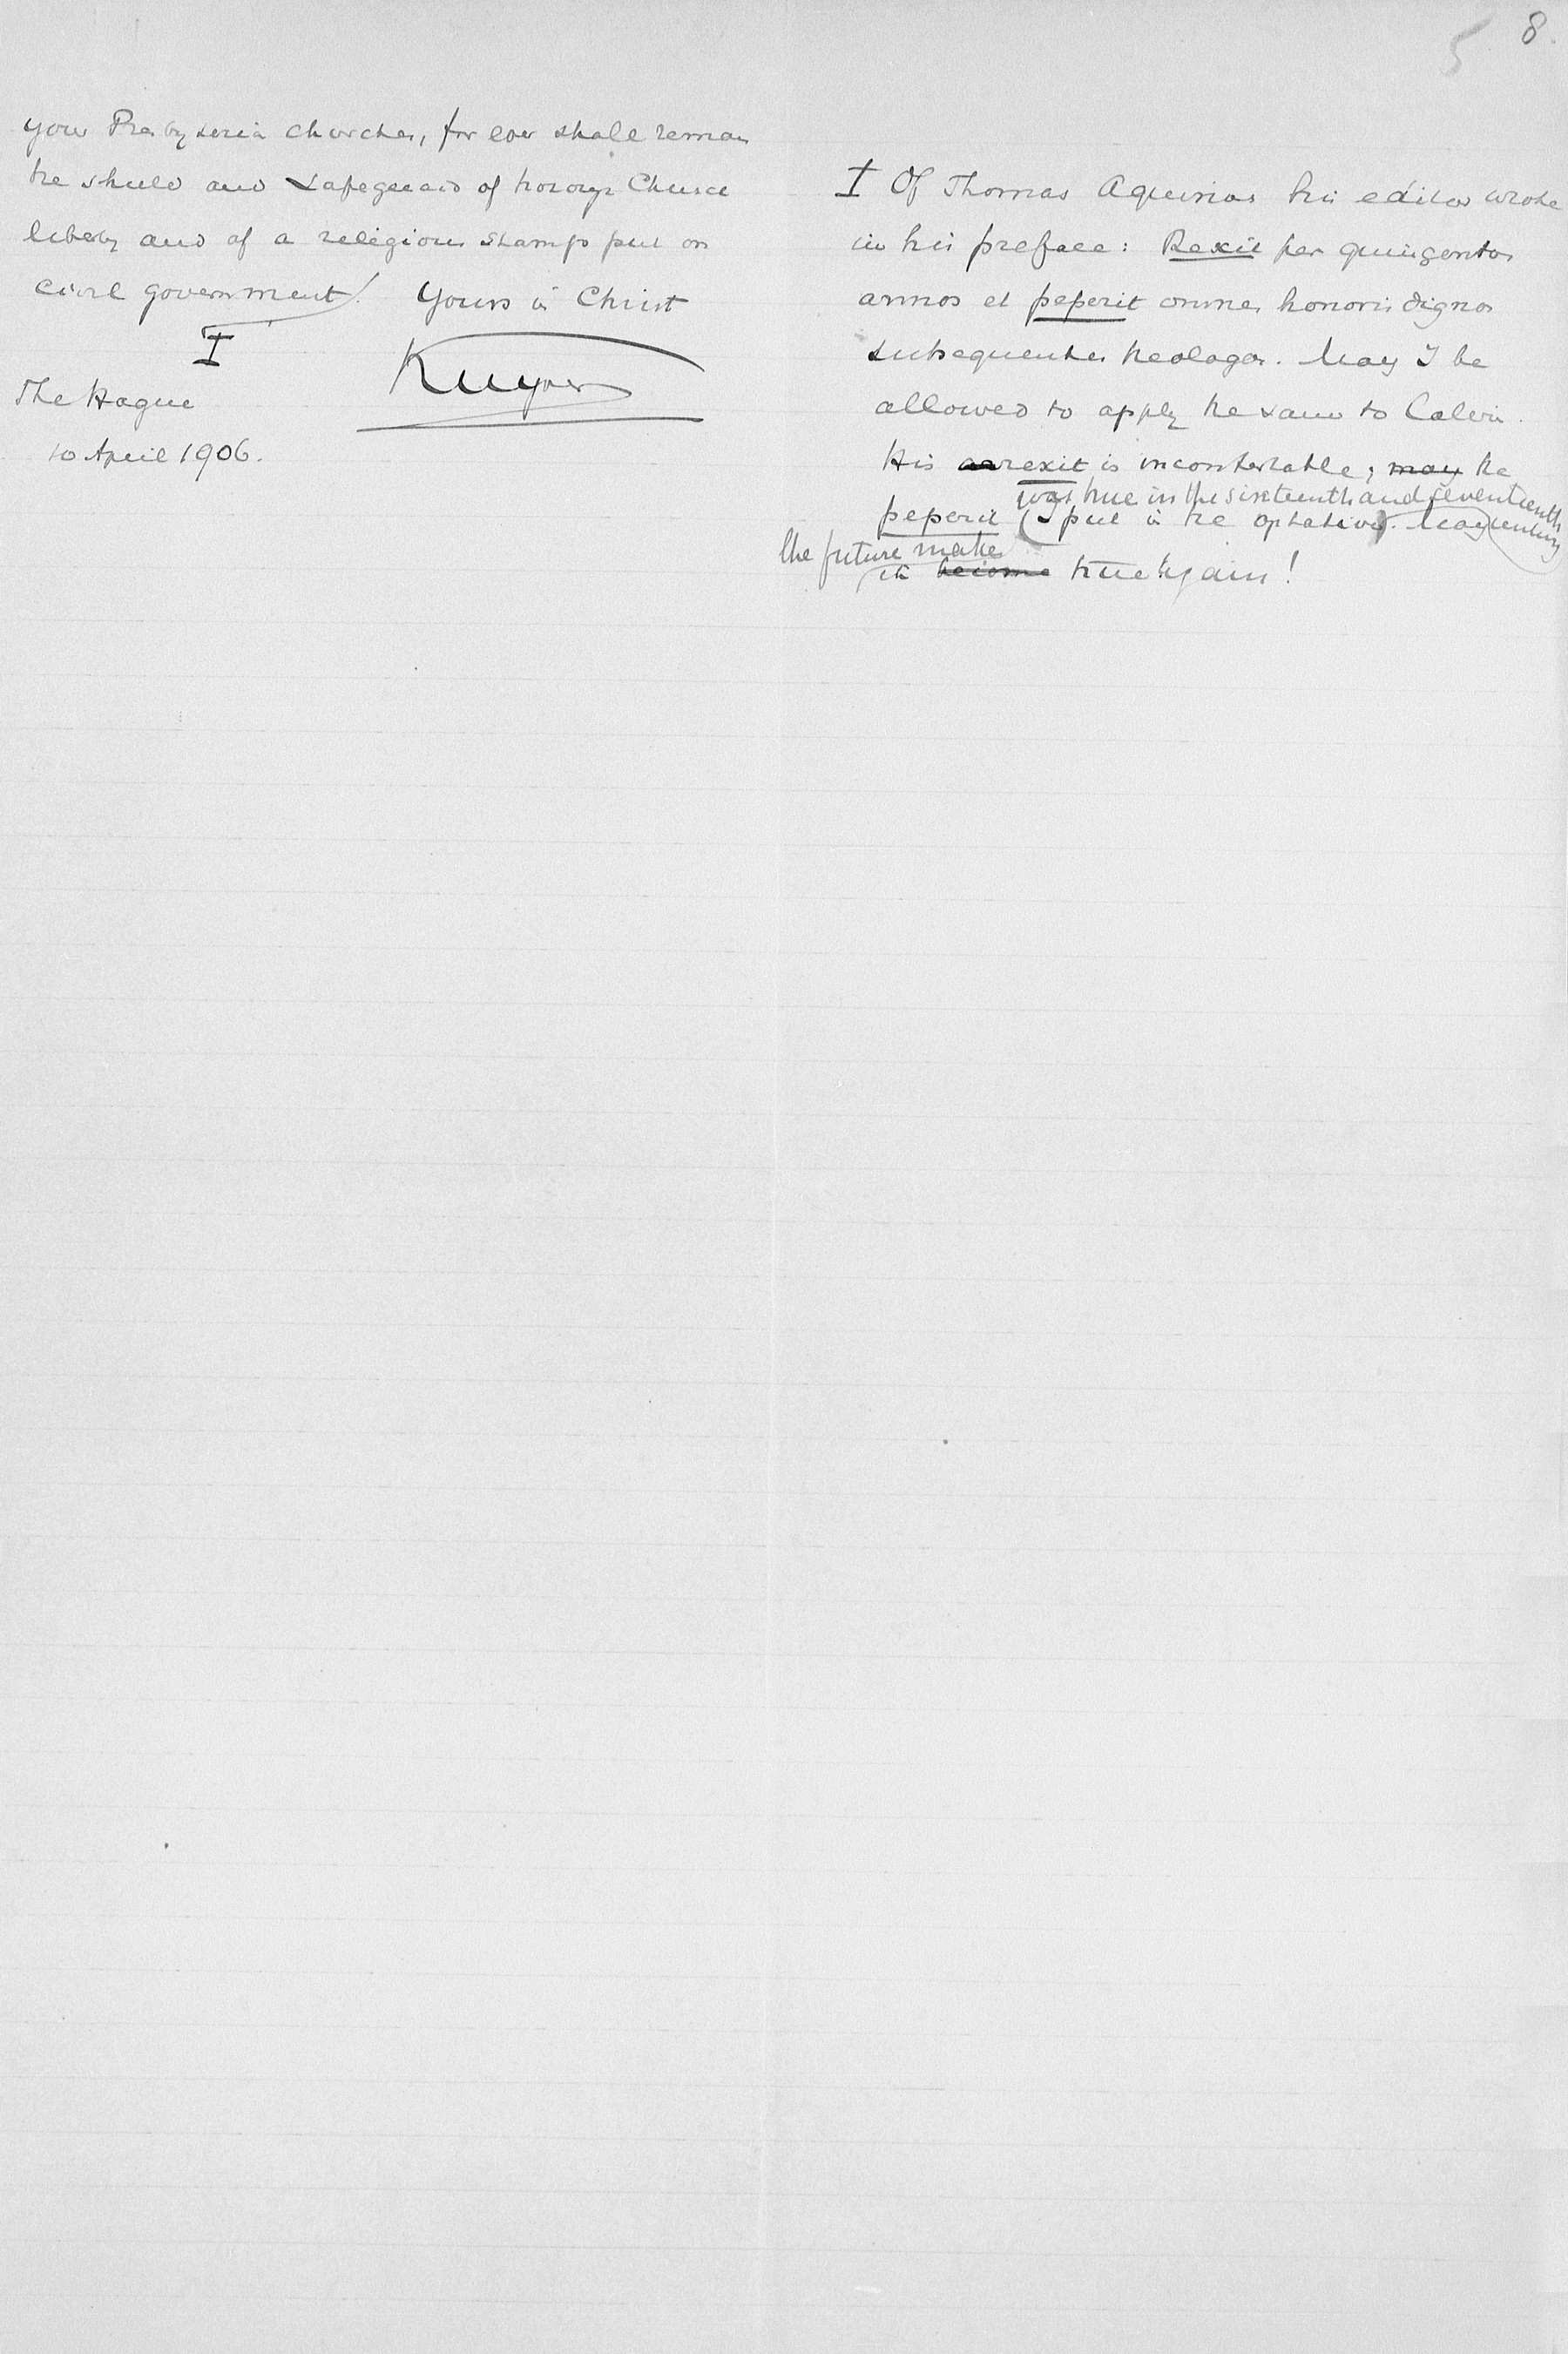 8.
5
your Presbyterian churches, for ever shall remain
the shield and safeguard of thorough Church
liberty and of a religious stamp put on
civil government.
I
Yours in Christ
Kuyper
The Hague
10 April 1906.
I Of Thomas Aquinas his editor wrote
in his preface: Rexit per quingentos
annos et peperit omnes honoris dignos
subsequentes theologos. May I be
allowed to apply the same to Calvin.
His rexit is incontestable; may the
was true in the sixteenth and seventeenth
peperit (I put in the optative). May century
the future make
it become true again!